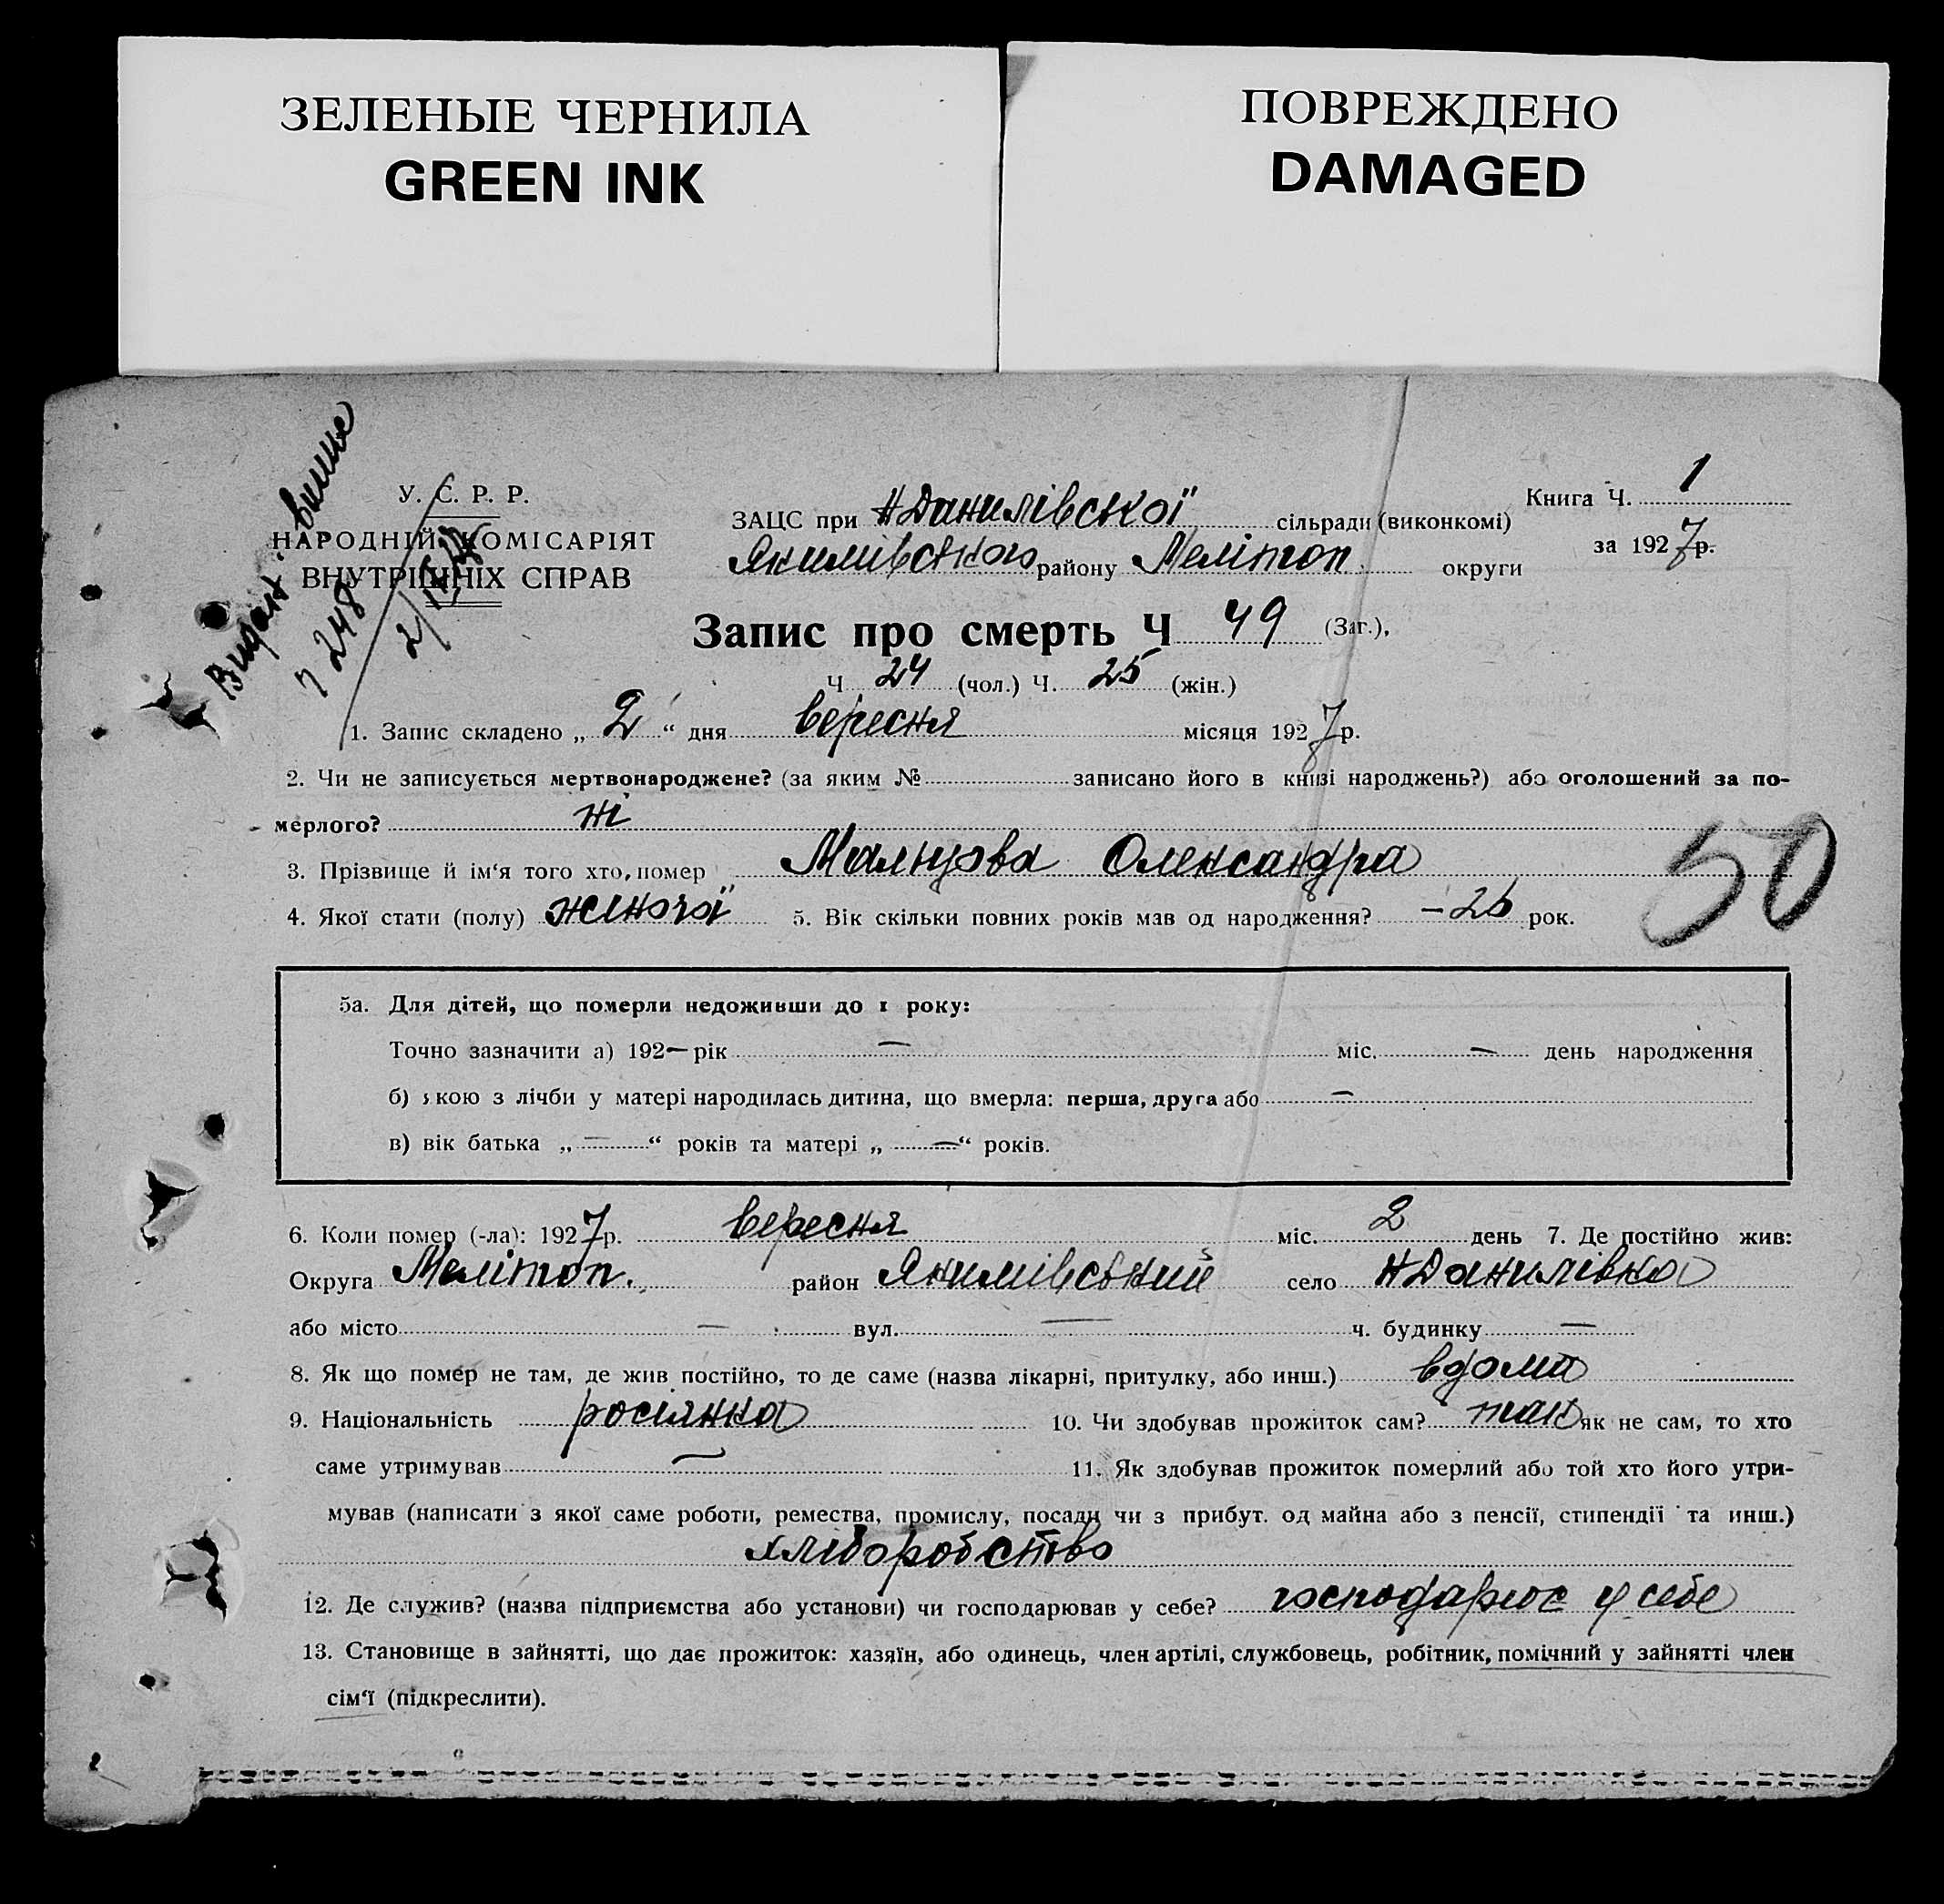 ЗЕЛЕНЫЕ ЧЕРНИЛА
GREEN INK
ПОВРЕЖДЕНО
DAMAGED
Видан
248
У. С. Р. Р.
НАРОДНІЙ КОМІСАРІЯТ
ВНУТРІШНІХ СПРАВ
Книга Ч. 1
за 1927 р.
ЗАЦС при Н Данилівської сільради (виконкомі)
Якимівського району Меліто​п. округи
Запис про смерть Ч 49 (Заг.),
Ч 24 (чол.) Ч. 25 (жін.)
1. Запис складено „ 2 “ дня вересня місяця 1927 р.
2. Чи не записується мертвонароджене? (за яким № записано його в книзі народжень?) або оголошений за по-
мерлого? ні
3. Прізвище й ім‘я того хто, помер Мальцова Олександра
50
4. Якої стати (полу) жіночої 5. Вік скільки повних років мав од народження? – 26 рок.
5а. Для дітей, що померли недоживши до 1 року:
Точно зазначити а) 192— рік — міс. — день народження
б) якою з лічби у матері народилась дитина, що вмерла: перша, друга або —
в) вік батька „ — “ років та матері „ — “ років.
6. Коли помер (-ла): 1927 р. вересня міс. 2 день 7. Де постійно жив:
Округа Мелітоп. район Якимівський село Н Данилівка
або місто — вул. — ч. будинку —
8. Як що помер не там, де жив постійно, то де саме (назва лікарні, притулку, або инш.) вдома
9. Національність росіянка 10. Чи здобував прожиток сам? так як не сам, то хто
саме утримував — 11. Як здобував прожиток померлий або той хто його утри-
мував (написати з якої саме роботи, ремества, промислу, посади чи з прибут. од майна або з пенсії, стипендії та инш.)
хліборобство
12. Де служив? (назва підприємства або установи) чи господарював у себе? господарює у себе
13. Становище в зайнятті, що дає прожиток: хазяїн, або одинець, член артілі, службовець, робітник, помічний у зайнятті член
сім‘ї (підкреслити).